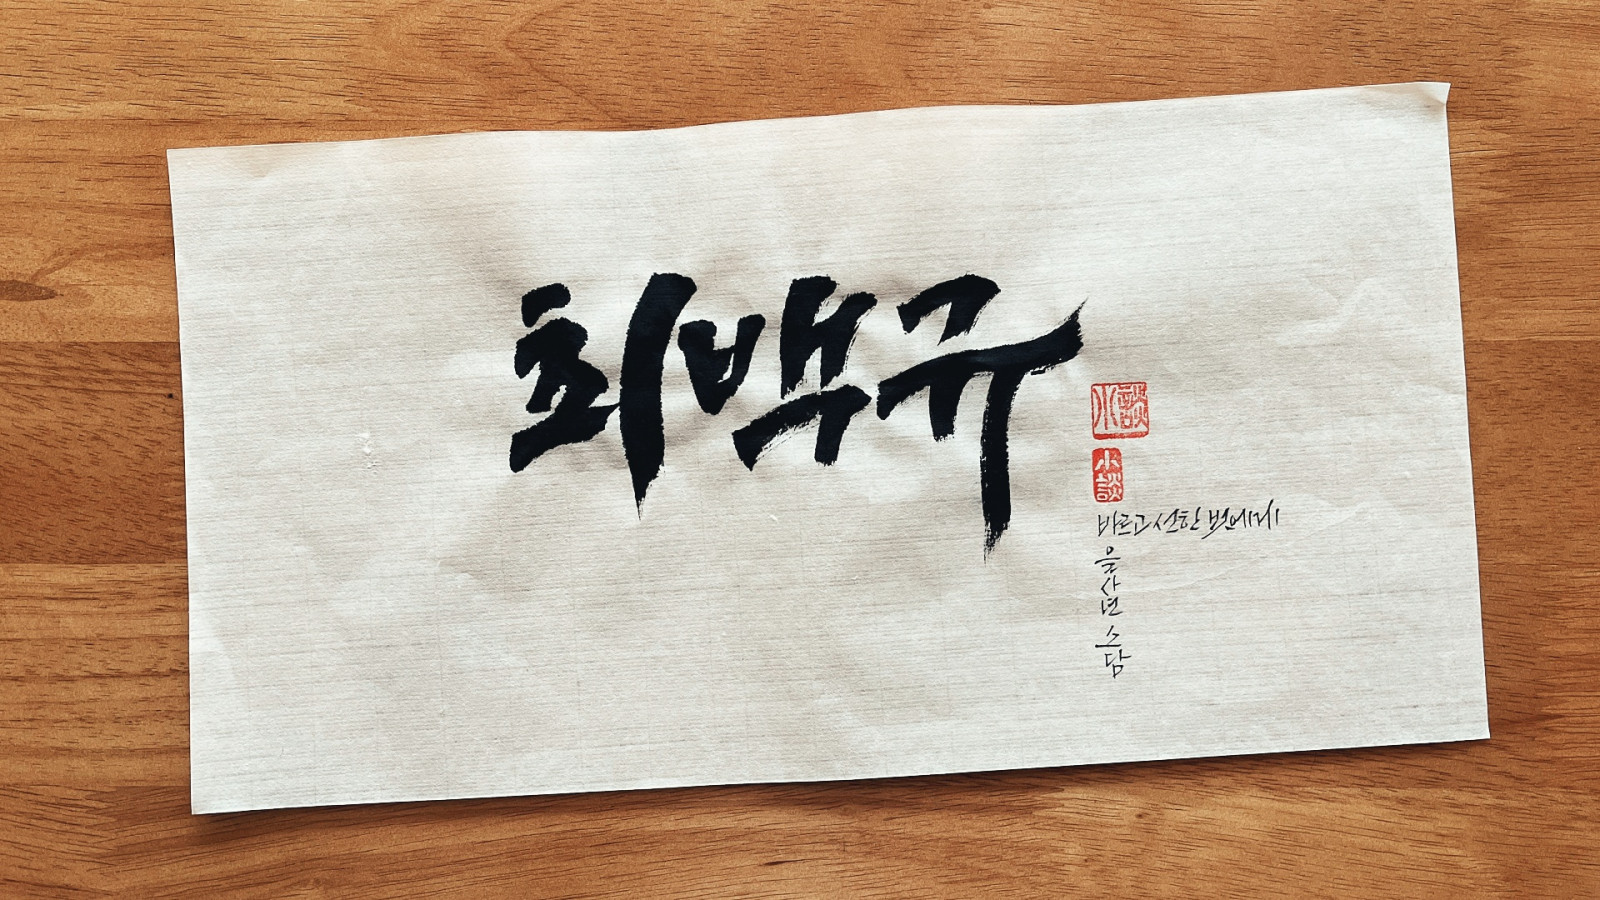 최백규
小談
小談
바르고 선한 벗에게
을사년 소담